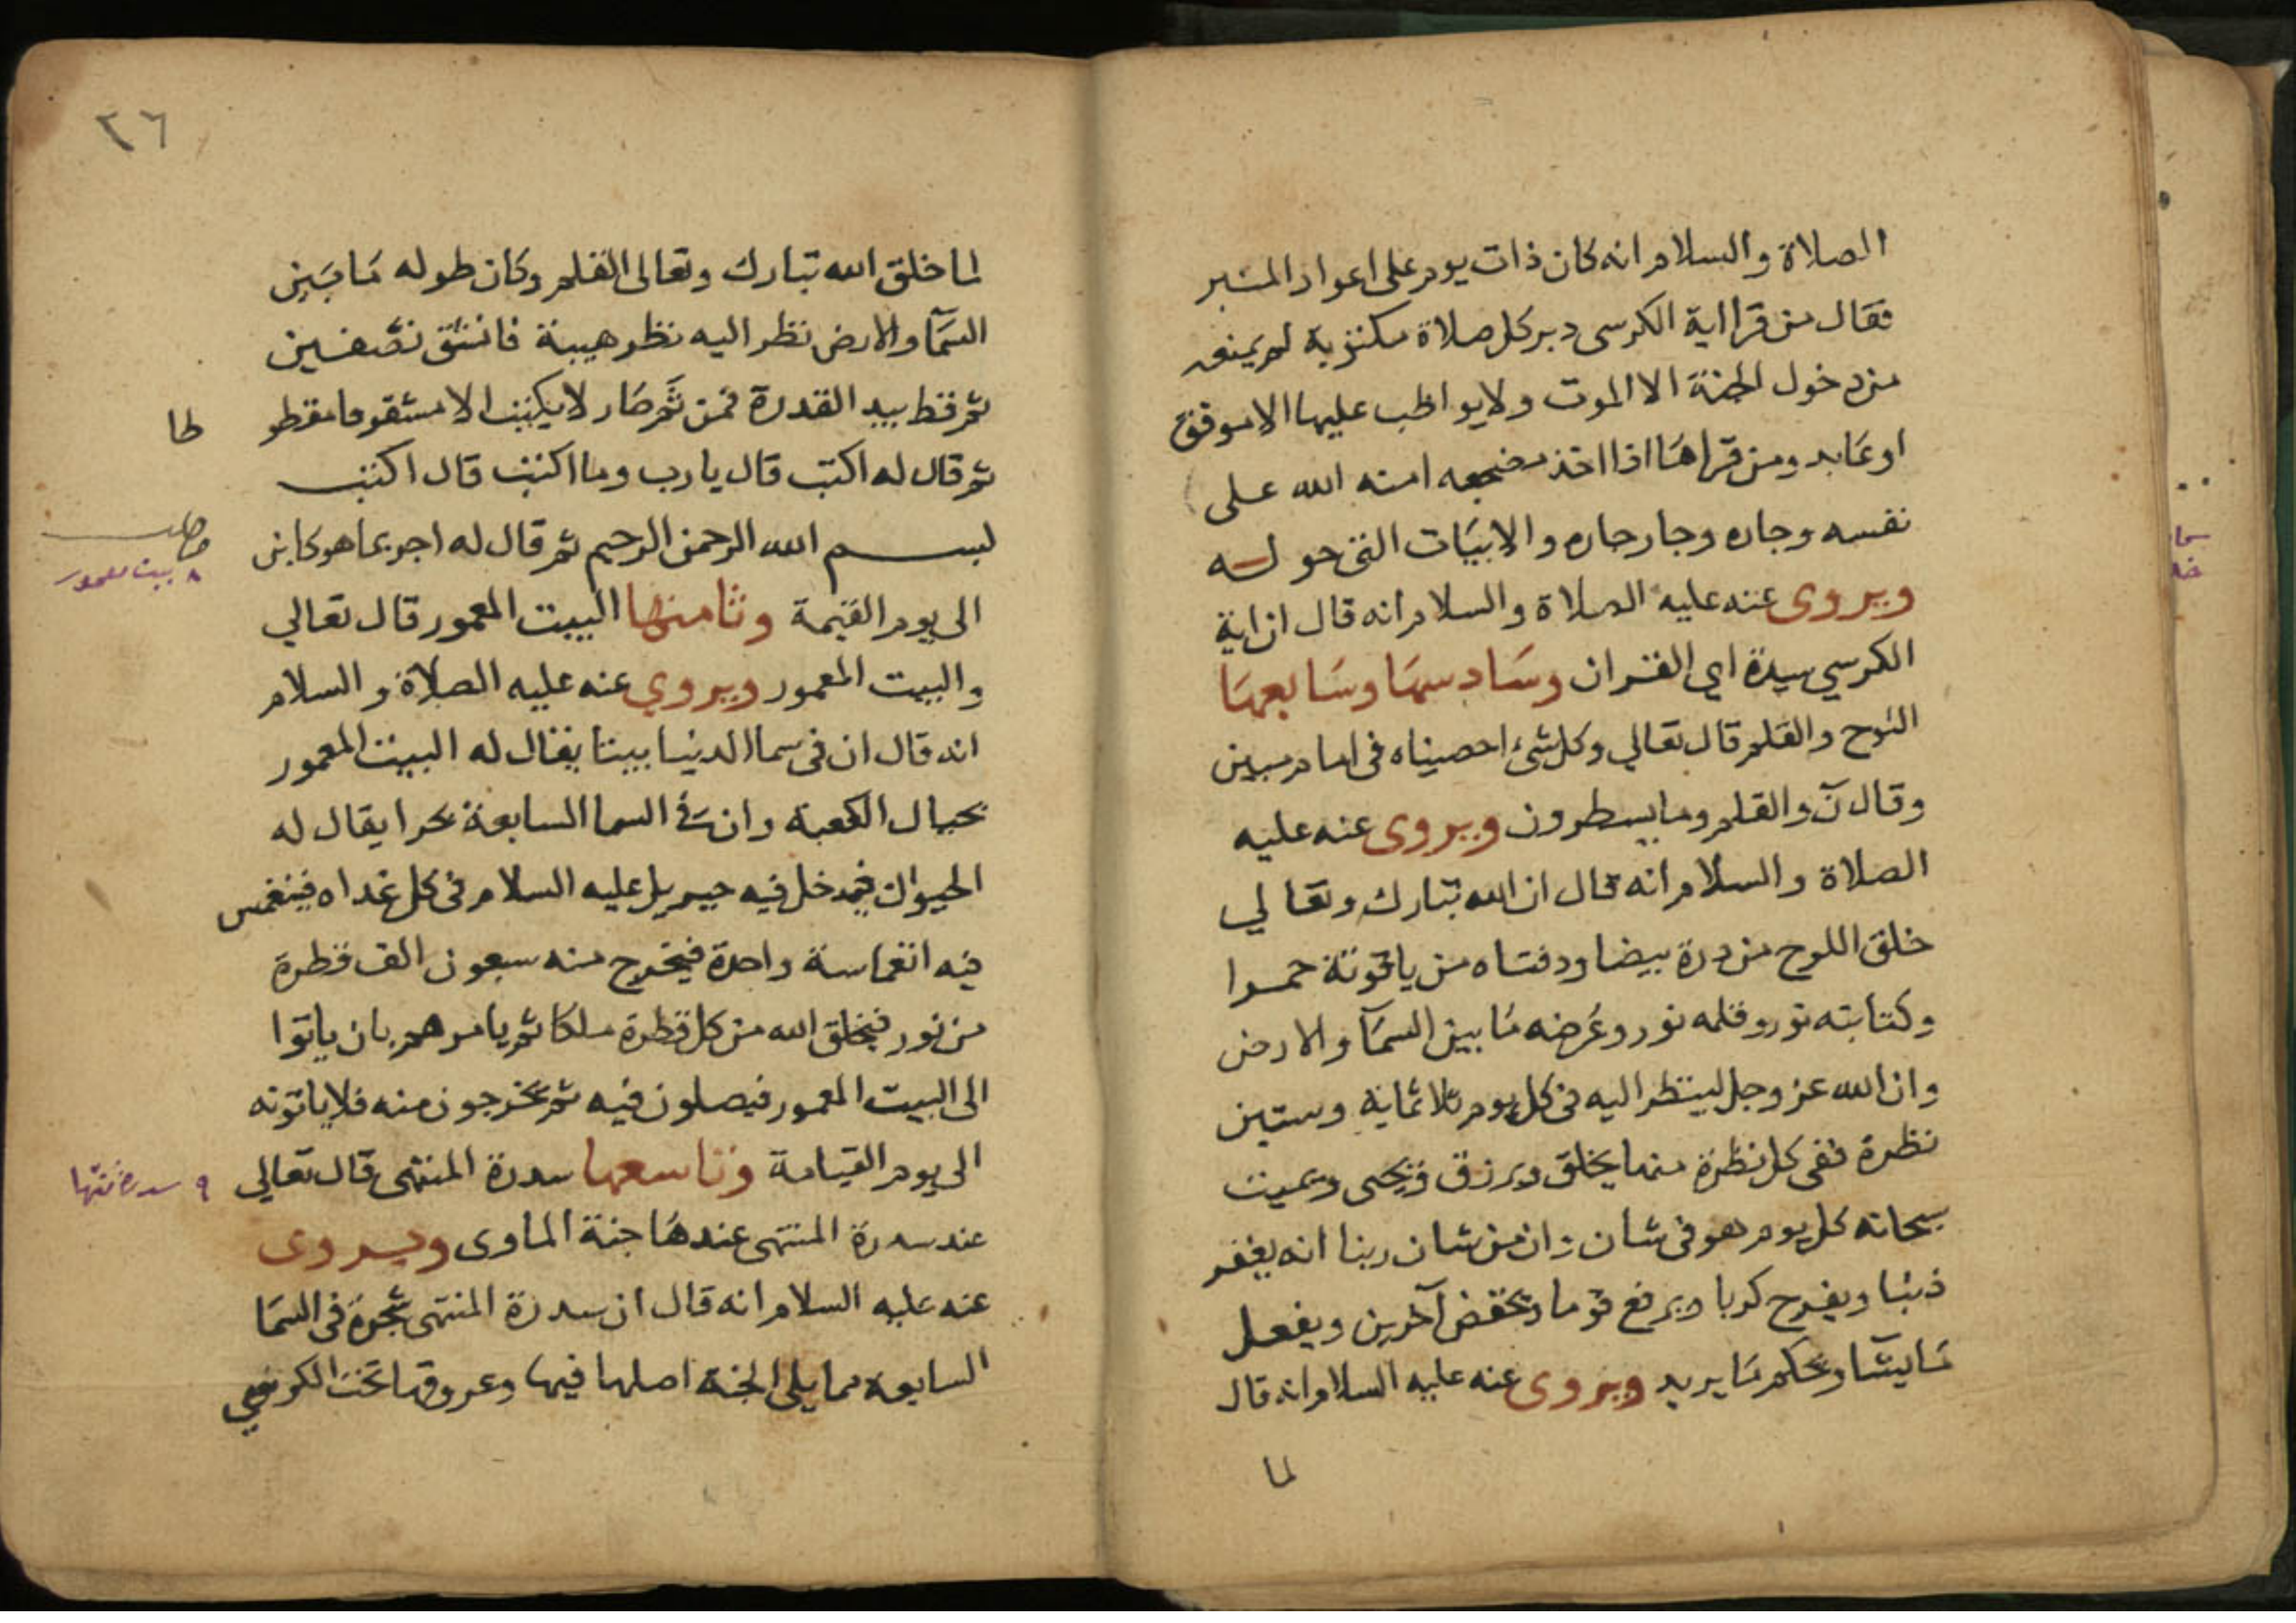 الصلاة والسلام انه كان ذات يوم على اعواد المنبر
فقال من قرا اية الكرسى دبر كل صلاة مكتوبة لم يمنعه
من دخول الجنة الا الموت ولا يواظب عليها الا موفق
او عابد ومن قراها اذا اخذ مضجعه امنه الله على
نفسه وجاره وجار جاره والابيات التى حوله
ويروى عنه عليه الصلاة والسلام انه قال ان اية
الكرسي سيدة اي القران وسادسها وسابعها
اللوح والقلم قال تعالي وكل شئ احصيناه فى امام مبين
وقال نٓ والقلم وما يسطرون ويروى عنه عليه
الصلاة والسلام انه قال ان الله تبارك وتعالي
خلق اللوح من درة بيضا ودفتاه من ياقوتة حمرا
وكتابته نور وقلمه نور وعرضه ما بين السمآ والارض
وان الله عز وجل لينظر اليه فى كل يوم ثلاثماية وستين
نظرة ففى كل نظرة منها يخلق ويرزق ويحيى ويميت
سبحانه كل يوم هو فى شان وان من شان ربنا انه يغفر
ذنبا ويفرج كربا ويرفع قوما ويخفض آخرين ويفعل
ما يشا ويحكم ما يريد ويروى عنه عليه السلام انه قال
لما
٢٦
لما خلق الله تبارك وتعالى القلم وكان طوله ما بين
السمآ والارض نظر اليه نظر هيبة فانشق نصفين
ثم قط بيد القدرة فمن ثم صار لا يكتب الا مشقوقا مقطو
طا
ثم قال له اكتب قال يا رب وما اكتب قال اكتب
بسم الله الرحمن الرحيم ثم قال له اجر بما هو كاين
٨ بيت معمور
الى يوم القيمة وثامنها البيت المعمور قال تعالي
والبيت المعمور ويروي عنه عليه الصلاة والسلام
انه قال ان فى سما الدنيا بيتا يقال له البيت المعمور
بحيال الكعبة وان في السما السابعة بحرا يقال له
الحيوان فيدخل فيه جبريل عليه السلام فى كل غداه فينغمس
فيه انغماسة واحدة فيخرج منه سبعون الف قطرة
من نور فيخلق الله من كل قطرة ملكا ثم يامرهم بان ياتوا
الى البيت المعمور فيصلون فيه ثم يخرجون منه فلا ياتونه
الى يوم القيامة وتاسعها سدرة المنتهى قال تعالي
٩ سدرة منتها
عند سدرة المنتهى عندها جنة الماوى ويروى
عنه عليه السلام انه قال ان سدرة المنتهى شجرة فى السما
السابعة مما يلى الجنة اصلها فيها وعروقها تحت الكرسي